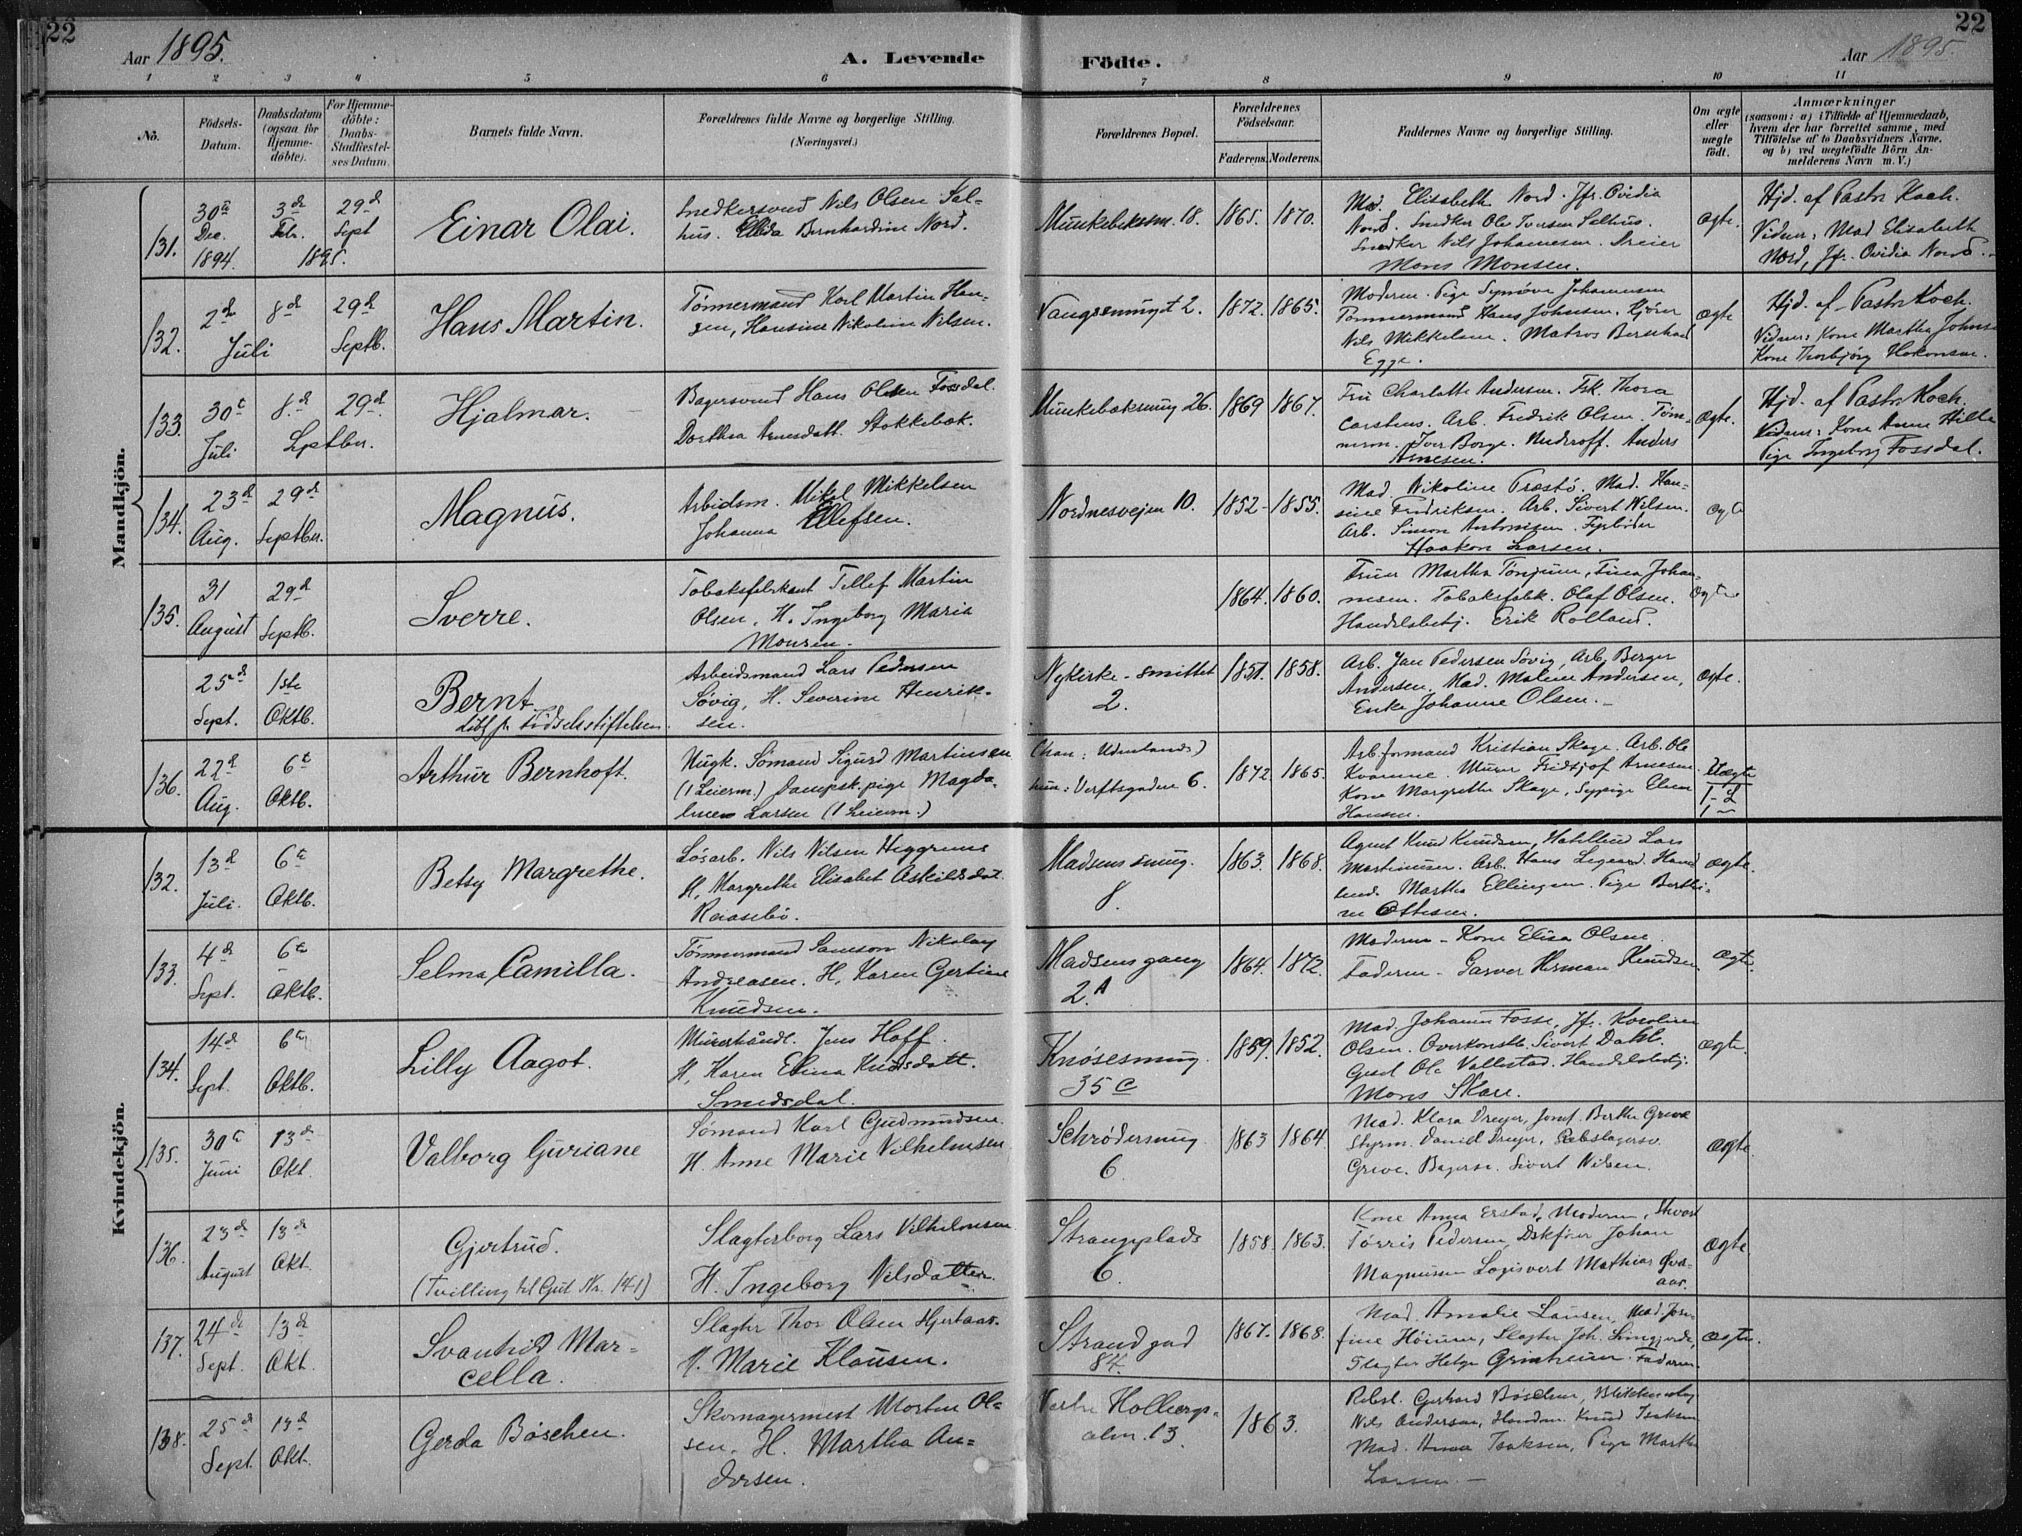 22
Aar 1895.
A. Levende
Födte.
Aar 1895.
22
1 2 3 4 5 6 7 8 9 10 11
No.
Födsels-
Datum.
Daabsdatum
(ogsaa for
Hjemme-
döbte).
For Hjemme-
döbte:
Daabs-
Stadfæstel-
ses Datum.
Barnets fulde Navn.
Forældrenes fulde Navne og borgerlige Stilling.
(Næringsvei.)
Forældrenes Bopæl.
Forældrenes
Födselsaar.
Faderens. Moderens.
Faddernes Navne og borgerlige Stilling.
Om ægte
eller
uægte
födt.
Anmærkninger
(saasom: a) i Tilfælde af Hjemmedaab,
hvem der har forrettet samme, med
Tilföielse af to Daabsvidners Navne,
og b) ved uægtefödte Börn An-
melderens Navn m. V.)
Mandkjön.
131.
30te
Dec.
1894.
3d
Febr.
29d
Sept
1895.
Einar Olai.
Snedkersvend Nils Olsen Sal-
hus. Elida Bernhardine Nord.
Munkebeksm. 18.
1865. 1870.
Mad. Elisabeth Nord. Jfr. Ovidia
Nord. Snedker Ole Iversen Salhus.
Snedker Nils Johannesen. Dreier
Mons Monsen.
ægte.
Hjd. af Pastr. Koch.
Vidner: Mad Elisabeth
Nord, Jfr. Ovidia Nord.
132.
2d
8d
Juli
29d
Septb.
Hans Martin.
Tömmermand Karl Martin Han-
sen, Hansine Nikoline Nilsen.
Vaugsensmgt 2.
1872. 1865.
Moderen. Pige Synöve Johannesen
Tömmermand Hans Johnsen. Kjörer
Nils Mikkelsen. Matros Berent
Egge.
ægte
Hjd. af Pastr. Koch.
Vidner: Kone Martha Johns
Kone Thorbjörg Hakonsen.
133.
30t
Juli
8.d
29d
Septber.
Hjalmar.
Bagersvend Hans Olsen Fossdal.
Dorthea Arnesdatt. Stokkebæk.
Munkebæksmug 26.
1869 1867.
Fru Charlotte Andersen. Frk. Thora
Carstens. Arb. Fredrik Olsen. Töm-
merm. Iver Borge. Underoff. Anders
Arnesen.
ægte.
Hjd. af Pastr. Koch.
Vidner: Kone Anna Hille
Pige Ingeborg Fossdal.
134.
23d
Aug.
29d
Septber.
Magnus.
Arbeidsm. Mikal Mikkelsen
Johanna Ellefsen.
Nordnesveien 10.
1852- 1855.
Mad Nikoline Præstö. Mad. Han-
sine Fredriksen. Arb. Sivert Nilsen.
Arb. Simon Antonisen. Fyrböder
Haakon Larsen.
ægte
135.
31
August
29d
Septb.
Sverre.
Tobaksfabrikant Tellef Martin
Olsen, H. Ingeborg Maria
Monsen.
1864. 1860.
Fruer Martha Tönjum, Tina Johan-
nesen. Tobaksfabk. Olaf Olsen.
Handelsbetj. Erik Rolland.
ægte
25d
Sept.
1ste
Oktb.
Bernt
Arbeidsmand Lars Pedersen
Søvig, H. Severine Henrik-
sen.
Nykirke-smittet
2.
1851. 1858.
Arb. Jan Pedersen Sövig, Arb. Berger
Andersen. Mad. Malene Andersen,
Enke Johanne Olsen.
ægte.
136.
22d
Aug.
6te
Oktb.
Arthur Bernhoft.
Ungk. Sömand Sigurd Martinsen
(1 Leierm.) Dampsk. pige Magda-
lene Larsen (1 Leierm.)
(han: Udenlands)
hun: Verftsgaden 6.
1872 1865.
Arb. formand Kristian Skage. Arb. Ole
Kvamme. Murer Fridtjof Arnesen.
Kone Margrethe Skage, Sypige Elsen
Hansen.
Uægte
1-2
Kvindekjön.
132.
13d
Juli.
6te
Oktb.
Betsy Margrethe.
Lösarb. Nils Nilsen Heggrenes
H. Margrethe Elisabet Askildsdat.
Madsens smug.
8.
1863. 1868.
Agent Knud Knudsen,
Martinusen. Arb. Hans
Martha Ellingsen. Pige Berthi-
ne Ottesen.
ægte.
133.
4d
Sept.
6te
Oktb.
Selma Camilla.
Tömmermand Samson Nikolay
Andreasen. H. Karen Gertine
Knudsen.
Madsens gang
2.A
1864. 1872.
Moderen - Kone Elisa Olsen
Faderen - Garver Herman Knudsen
ægte.
134.
14d
Sept.
6te
Oktb.
Lilly Aagot.
Murerhåndl. Jens Hoff.
H. Karen Elina Knutsdatt.
Smedsdal.
Knösesmug
35 C
1859. 1852.
Mad. Johanne Fosse, Jfr. Karoline
Olsen. Overkonstb. Sivert Dahl.
Ole Vallestad. Handelsbetj.
Mons Skare.
ægte.
135.
30te
Juni
13d
Okt.
Valborg Guriane
Sömand Karl Gudmundsen
H. Anne Marie Vilhelmsen
Schrödersmug
6.
1863 1864
Mad. Klara Dreyer, Jomf. Berthe Greve
Styrm. Daniel Dreyer, Rebslagersv.
Greve. Bagersv. Sivert Nilsen.
ægte.
136.
23d
August
13d
Okt.
Gjertrud.
(Tvilling til Gut Nr. 141)
Slagterborg Lars Vilhelmsen
H. Ingeborg Nilsdatter.
Strangplads
6.
1858. 1863.
Kone Anna Erstad, Moderen,
Törris Pedersen, Johan
Magnusen Mathias
ægte.
137.
24d
Sept.
13d
Okt.
Svanhid Mar-
cella.
Slagter Thor Olsen Hjertaas.
H. Marie Klausen.
Strandgad
84.
1867. 1868.
Mad. Amalie Lausen, Mad. Jose-
fine Höium, Slagter Joh.
Slagter Helge Grimheim. Faderen.
ægte.
138.
25d
Sept.
13d
Okt.
Gerda Böschen.
Skomagermest Morten Ol-
sen. H. Martha An-
dersen.
Vestre Holbergs-
alm. 13.
1863.
Rebsl. Gerhard Böschen,
Nils Andersen, Handm. Knud Isaksen
Mad. Anna Isaksen, Pige Martha
Larsen.